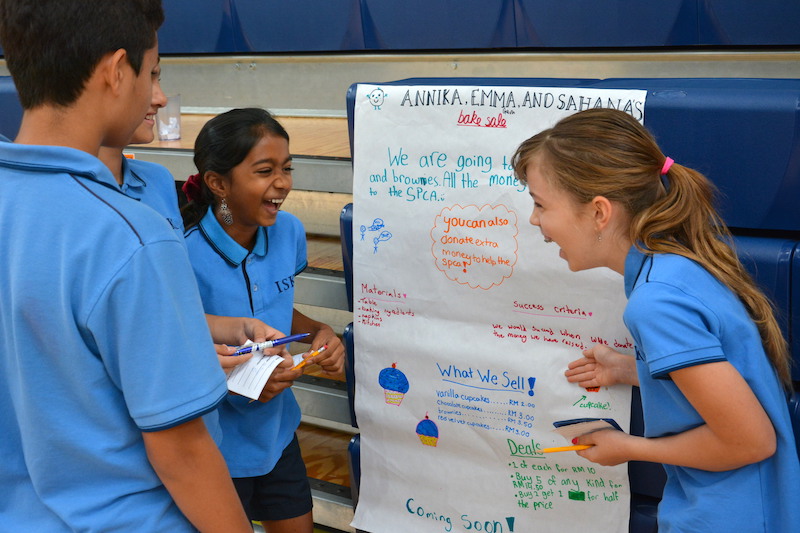 ANNIKA, EMMA, AND SAHANA'S
bake sale
We are going to
and brownies. All the money
to the SPCA.
you can also
donate extra
money to help the
SPCA!
ISK
Materials
- Table
- baking ingredients
- Pitchers
Success criteria
We would succeed when We've donated
the money we have raised.
What We Sell!
vanilla cupcakes........ RM 3.00
Chocolate cupcakes...... RM 3.00
brownies................ RM 3.50
red velvet cupcakes..... RM 3.00
cupcake!
Deals
• 1 of each for RM 10
• Buy 5 of any kind for
RM 14.50
• Buy 2 get 1 for half
the price
Coming Soon!